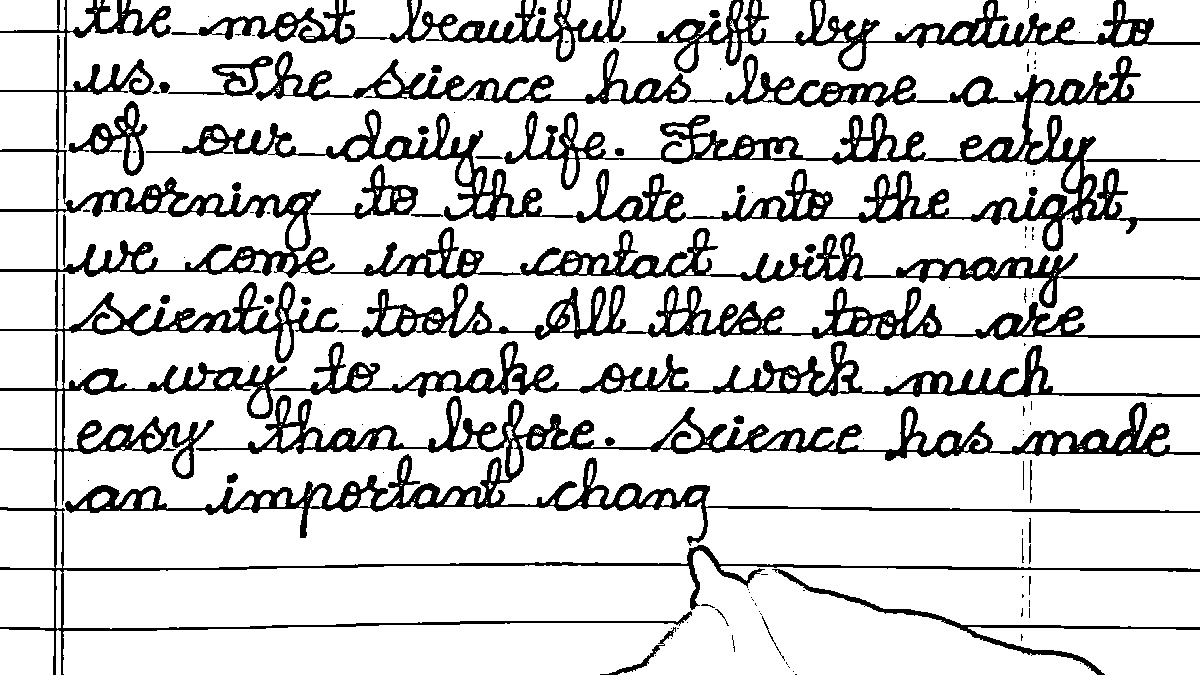 the most beautiful gift by nature to
us. The science has become a part
of our daily life. From the early
morning to the late into the night,
we come into contact with many
scientific tools. All these tools are
a way to make our work much
easy than before. Science has made
an important chang